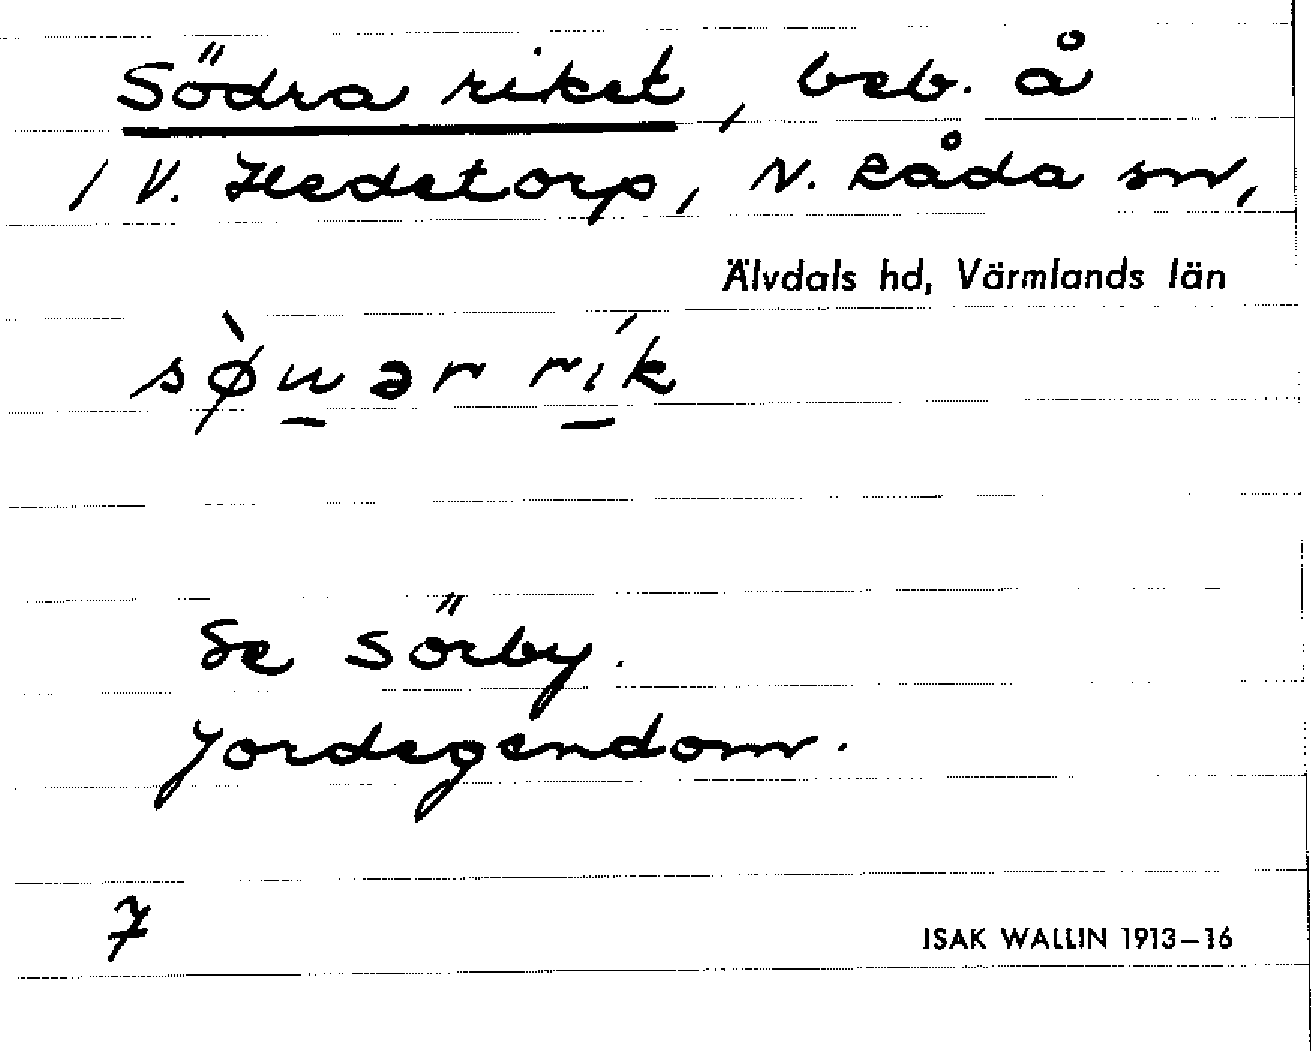 Södra riket, beb. å
1 V. Hedetorp, N. Råda sn,
Älvdals hd, Värmlands län
sø̀n̲ər rí̲k
Se Sörby.
Jordegendom.
7
ISAK WALLIN 1913–16